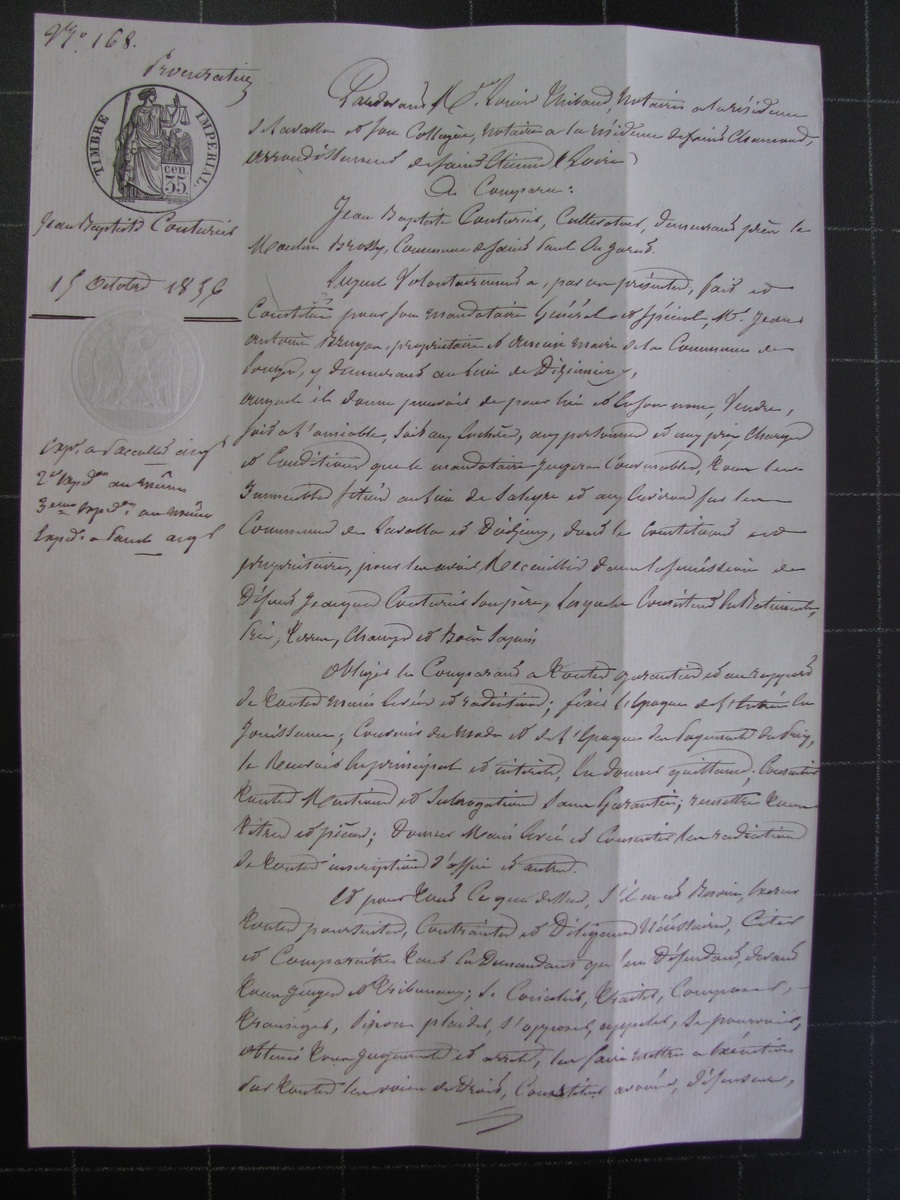 N.° 168.
Procuration
TIMBRE IMPÉRIAL
cen. 35
Jean Baptiste Couturier
15 Octobre 1856
2e Expd.on au même
3eme Expd.on au même
Pardevant M.e Louis Thibaud, Notaire à la résidence
de Lavalla et son Collègue, notaire à la résidence de Saint Chamond,
arrondissement de Saint Etienne (Loire)
A Comparu :
Jean Baptiste Couturier, Cultivateur, demeurant près le
Moulin Brossy, Commune de Saint Paul En Jarret.
Lequel Volontairement a, par ces présentes, fait et
Constitué pour son mandataire Général et spécial, Mr. Jean
Antoine Bruyas, propriétaire et ancien maire de la Commune de
y demeurant au lieu de
auquel il donne pouvoir de pour lui et en son nom, Vendre,
soit à l'amiable, soit aux Enchères, aux personnes et aux prix Charges
et Conditions que le mandataire jugera Convenables, tous les
Immeubles situés au lieu de et aux Environs sur les
Communes de Lavalla et dont le constituant est
propriétaire, pour les avoir Recueillis dans la succession de
Défunt Jacques Couturier son père, lesquels Consistent en Batiments,
Prés, Terres, Champs et Bois Sapins
Obliger le Comparant à toutes garanties et au rapport
de toutes main levées et radiations ; fixer l'Epoque de l'Entrée En
Jouissance ; Convenir du mode et de l'Epoque du payement du Prix,
le Recevoir En principal et intérêts, En donner quittance ; Consentir
toutes Mentions et Subrogations Sans Garantie ; remettre tous
titres et pièces ; Donner Main levée et Consentir la radiation
de toutes inscriptions d'office et autres.
Et pour tout Ce que dessus, s'il en est Besoin, Exercer
toutes poursuites, Contraintes et Diligences Nécessaires, Citer
et Comparaître tant En Demandant qu'en Défendant, devant
tous Juges et Tribunaux ; Se Concilier, Traiter, Composer,
transiger, Sinon plaider, S'opposer, appeler, Se pourvoir,
obtenir tous Jugements et arrêts, les faire mettre à Exécution
Par toutes les voies de Droit, Constituer avoués, Défenseurs,